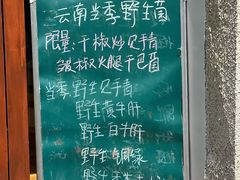 云南当季野生菌
限量:干椒炒见手青
皱椒火腿干巴菌
当季野生见手青
野生黄牛肝
野生白牛肝
野生铜绿
野生